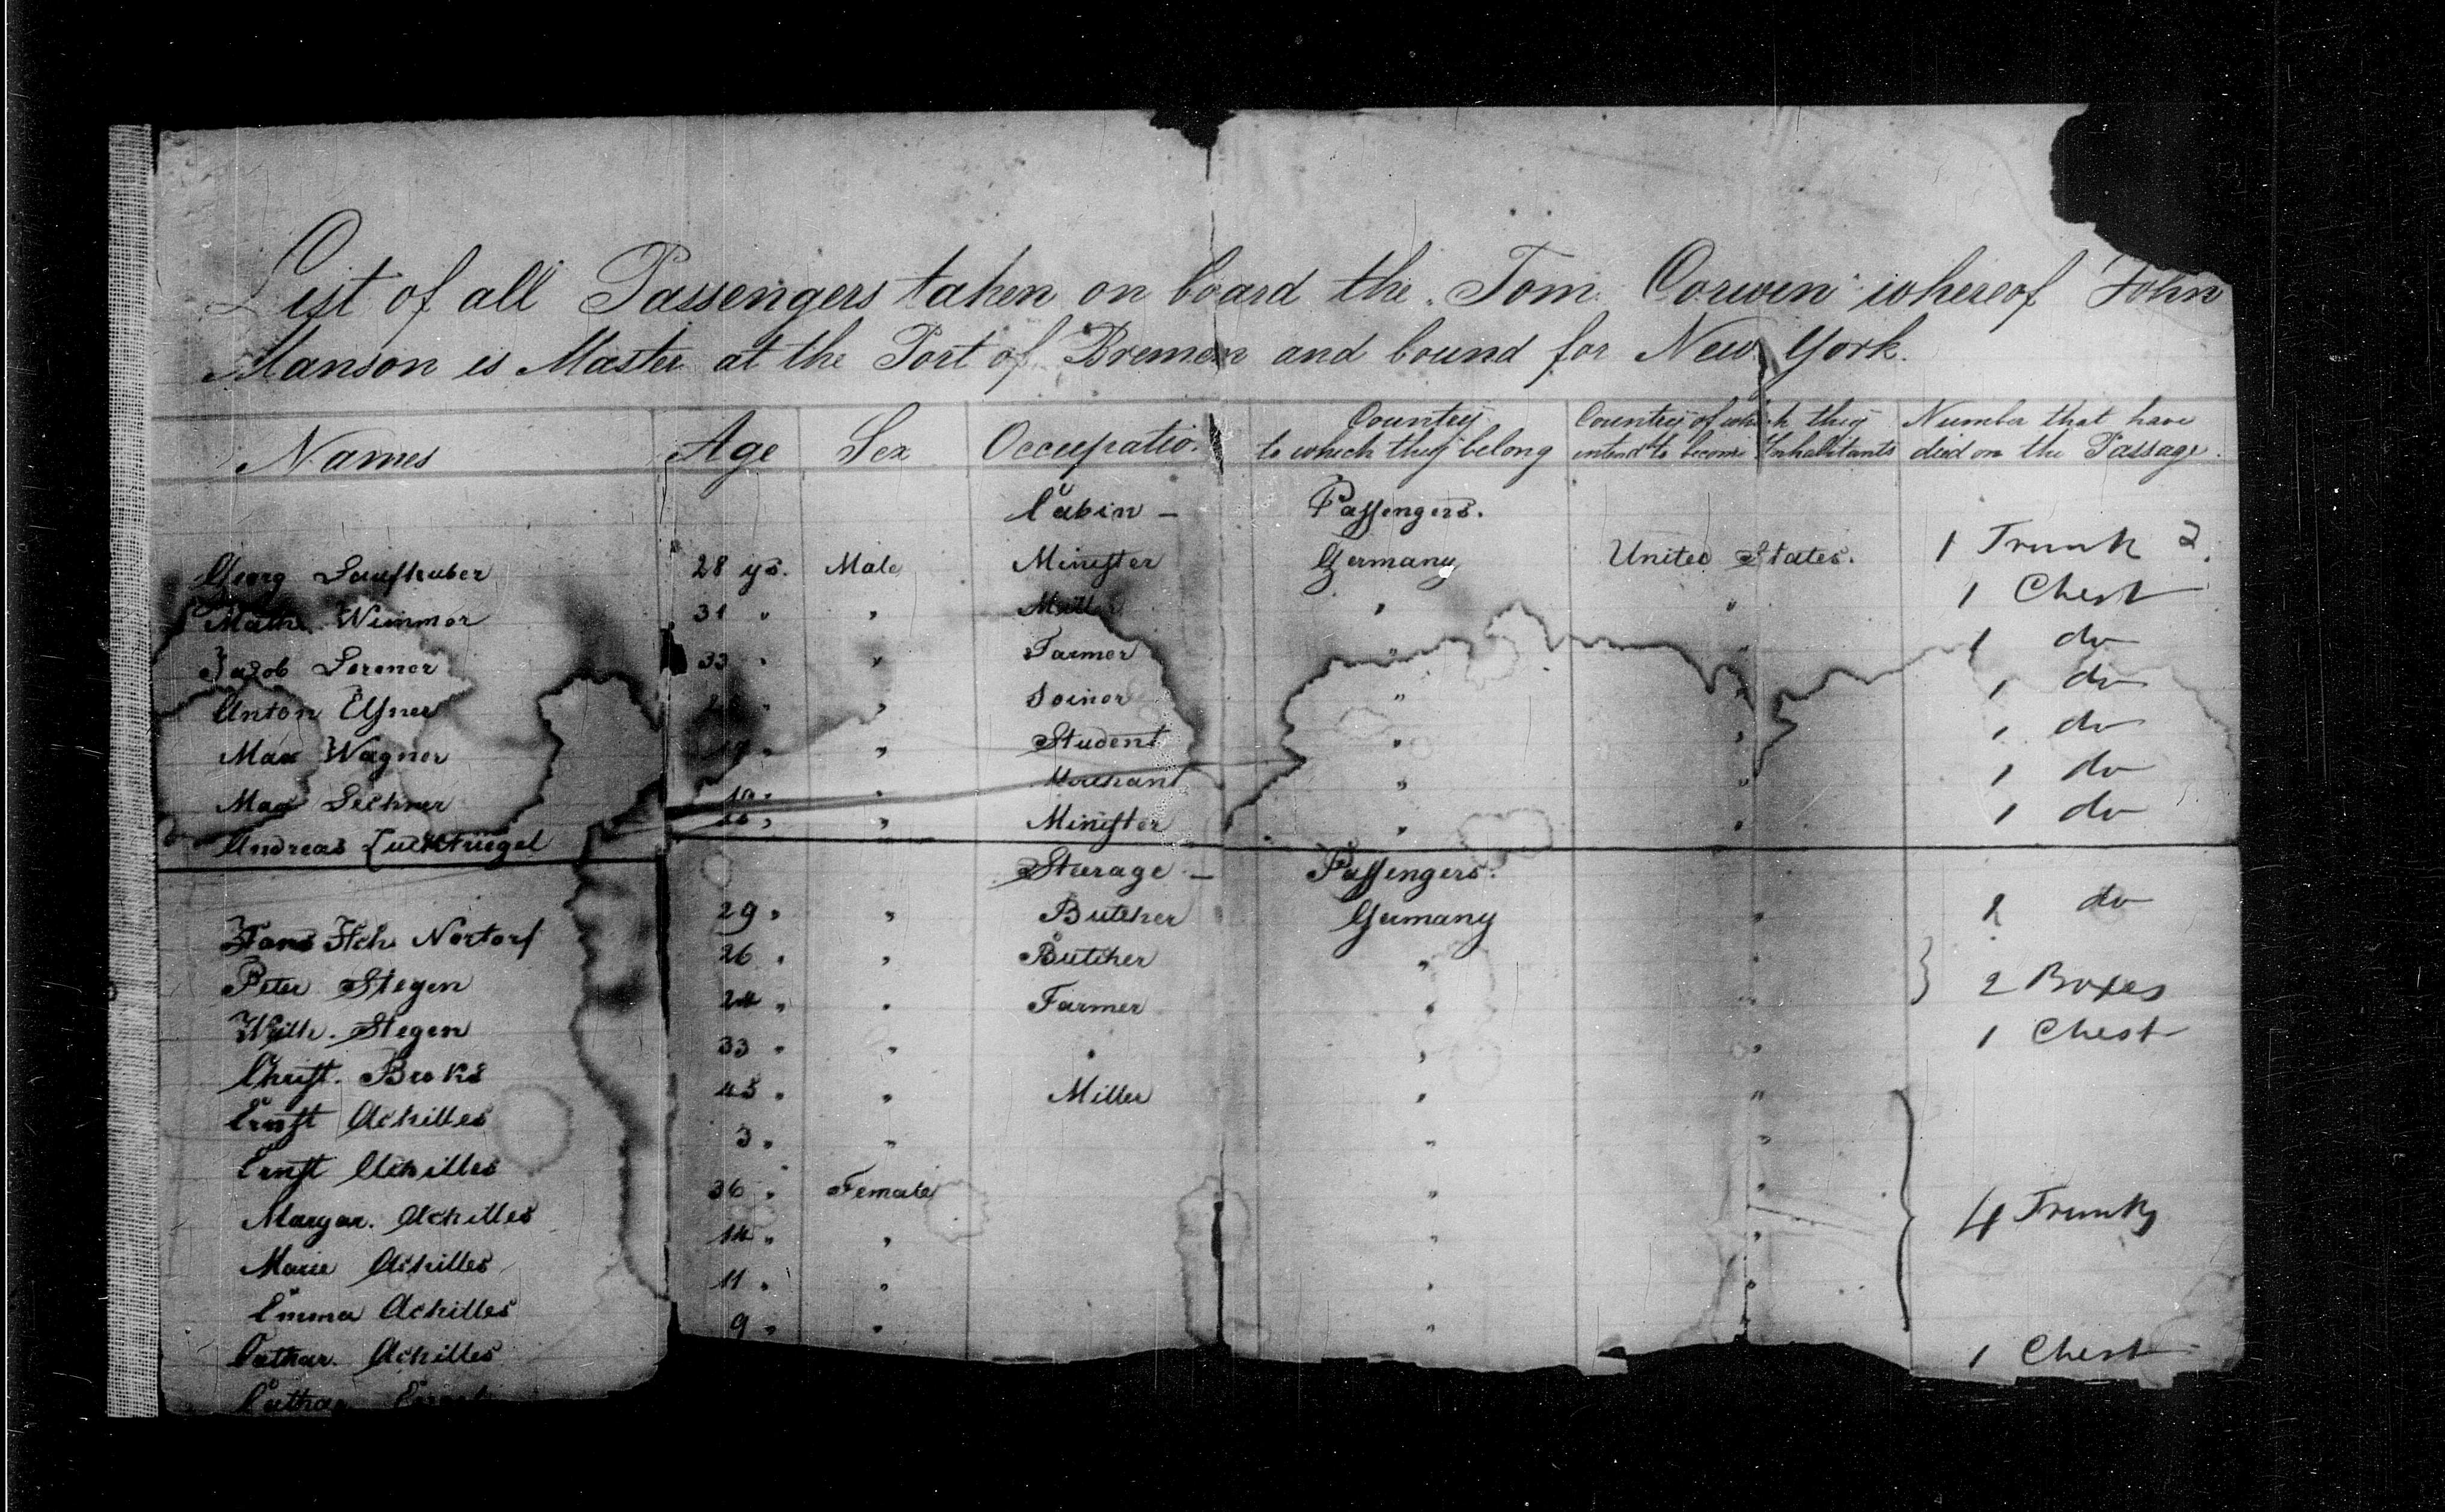 List of all Passengers taken on board the "Tom Corwin" whereof John
Manson is Master at the Port of Bremen and bound for New York.
Names Age Sex Occupatio. Country to which they belong Country of which they intend to become Inhabitants Number that have died on the Passage.
Cabin — Passengers.
Georg Laufhuber 28 ys. Male Minister Germany United States. 1 Trunk 2
Math. Wimmer 31 " " Miller " " 1 Chest
Jacob Lerener 33 " " Farmer " " 1 do
Anton Elsner " " Joiner " " 1 do
Max Wagner " " Student " " 1 do
Max Lechner " " Merchant " " 1 do
Andreas " " Minister " " 1 do
Steerage — Passengers.
Hans Hch Nortorf 29 " " Butcher Germany " do
Peter Stegen 26 " " Butcher " " } 2 Boxes
Wilh. Stegen 24 " " Farmer " "
Christ. Broks 33 " " " " " 1 Chest
Ernst Achilles 45 " " Miller " "
Ernst Achilles 3 " " " "
Margar. Achilles 36 " Female " " } 4 Trunks
Marie Achilles 14 " " " "
Emma Achilles 11 " " " "
Cathar. Achilles 9 " " "
Cathar 1 Chest